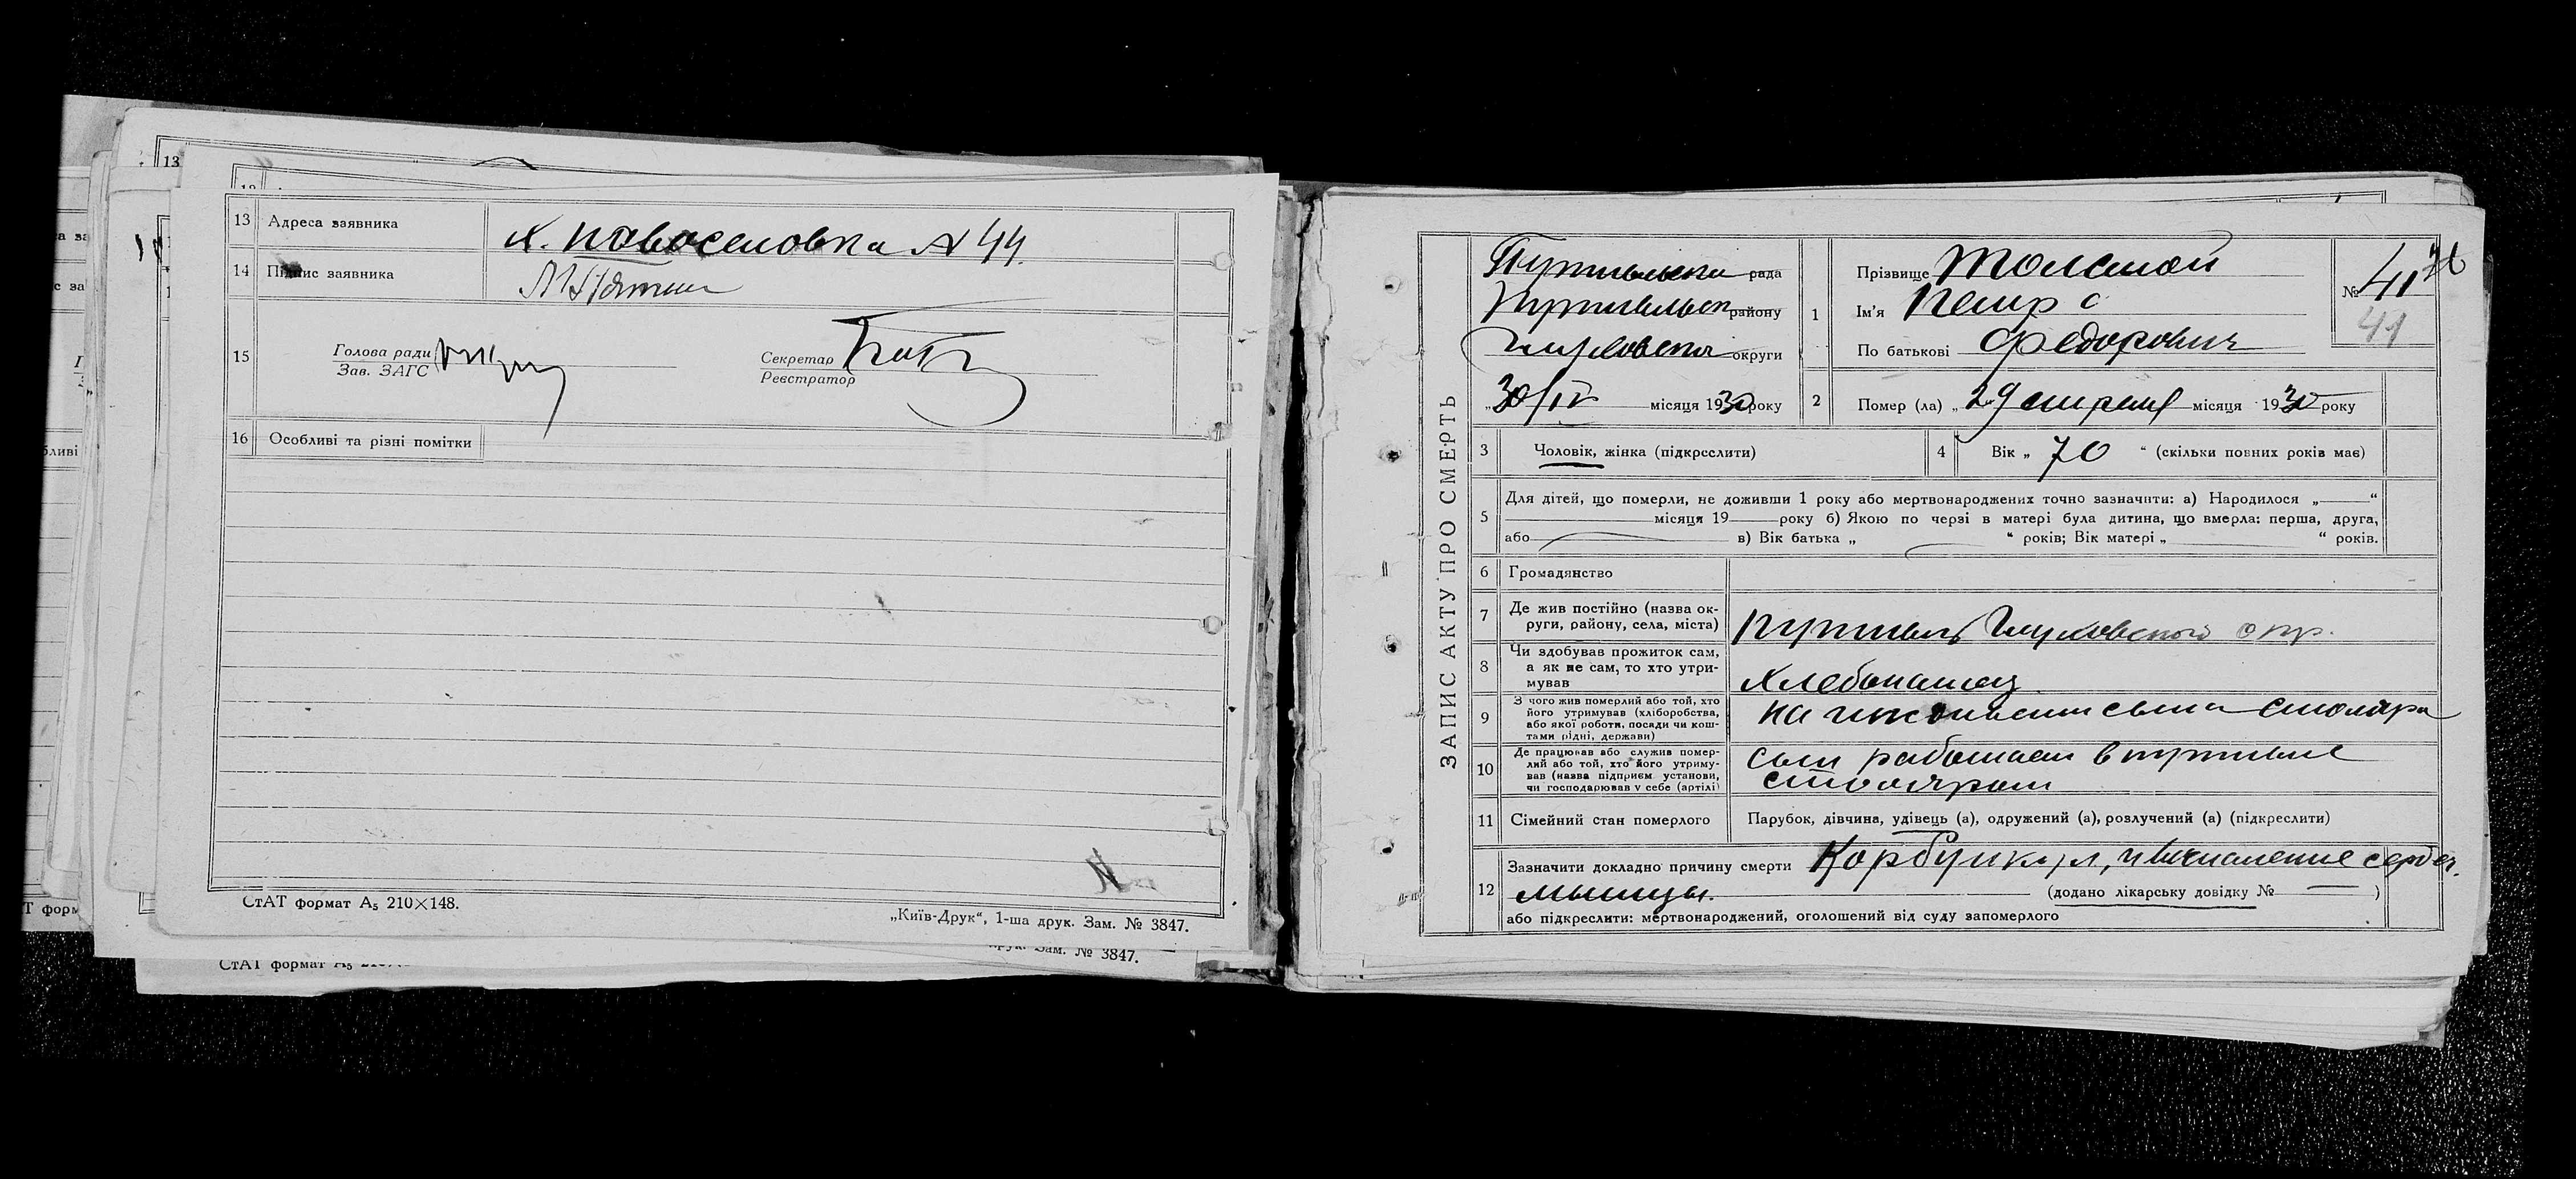 13 Адреса заявника х. Новоселовка № 44.
14 Підпис заявника
15 Голова ради
Зав. ЗАГС
Секретар
Реєстратор
16 Особливі та різні помітки
СтАТ формат А₅ 210×148.
„Київ-Друк“, 1-ша друк. Зам. № 3847.
друк. Зам. № 3847.
СтАТ формат А₅
ЗАПИС АКТУ ПРО СМЕРТЬ
Путивльска рада
Путивльск району
Глуховска округи
„30/IV місяця 1930 року
1 Прізвище Толстой
Ім'я Петр
По батькові Федорович
№ 41
41
2 Помер (ла) „29 апреля місяця 1930 року
3 Чоловік, жінка (підкреслити)
4 Вік „ 70 “ (скільки повних років має)
5 Для дітей, що померли, не доживши 1 року або мертвонароджених точно зазначити: а) Народилося „ “
місяця 19 року б) Якою по черзі в матері була дитина, що вмерла: перша, друга,
або в) Вік батька „ “ років; Вік матері „ “ років.
6 Громадянство
7 Де жив постійно (назва ок-
руги, району, села, міста) Путивль Глуховского окр.
8 Чи здобував прожиток сам,
а як не сам, то хто утри-
мував Хлебопашец
9 З чого жив померлий або той, хто
його утримував (хліборобства,
або якої роботи, посади чи кош-
тами рідні, держави) на иждивении сына столяра
10 Де працював або служив помер-
лий або той, хто його утриму-
вав (назва підприєм. установи,
чи господарював у себе (артілі) сын работает в путивле
столяром
11 Сімейний стан померлого Парубок, дівчина, удівець (а), одружений (а), розлучений (а) (підкреслити)
12 Зазначити докладно причину смерти Карбункул, и воспаление сердеч.
мышцы. (додано лікарську довідку № — )
або підкреслити: мертвонароджений, оголошений від суду запомерлого